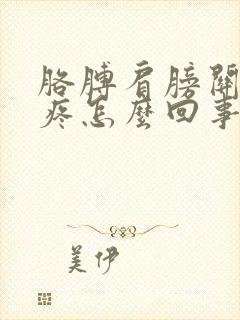 胳膊肩膀關
疼怎麼回事
美伊